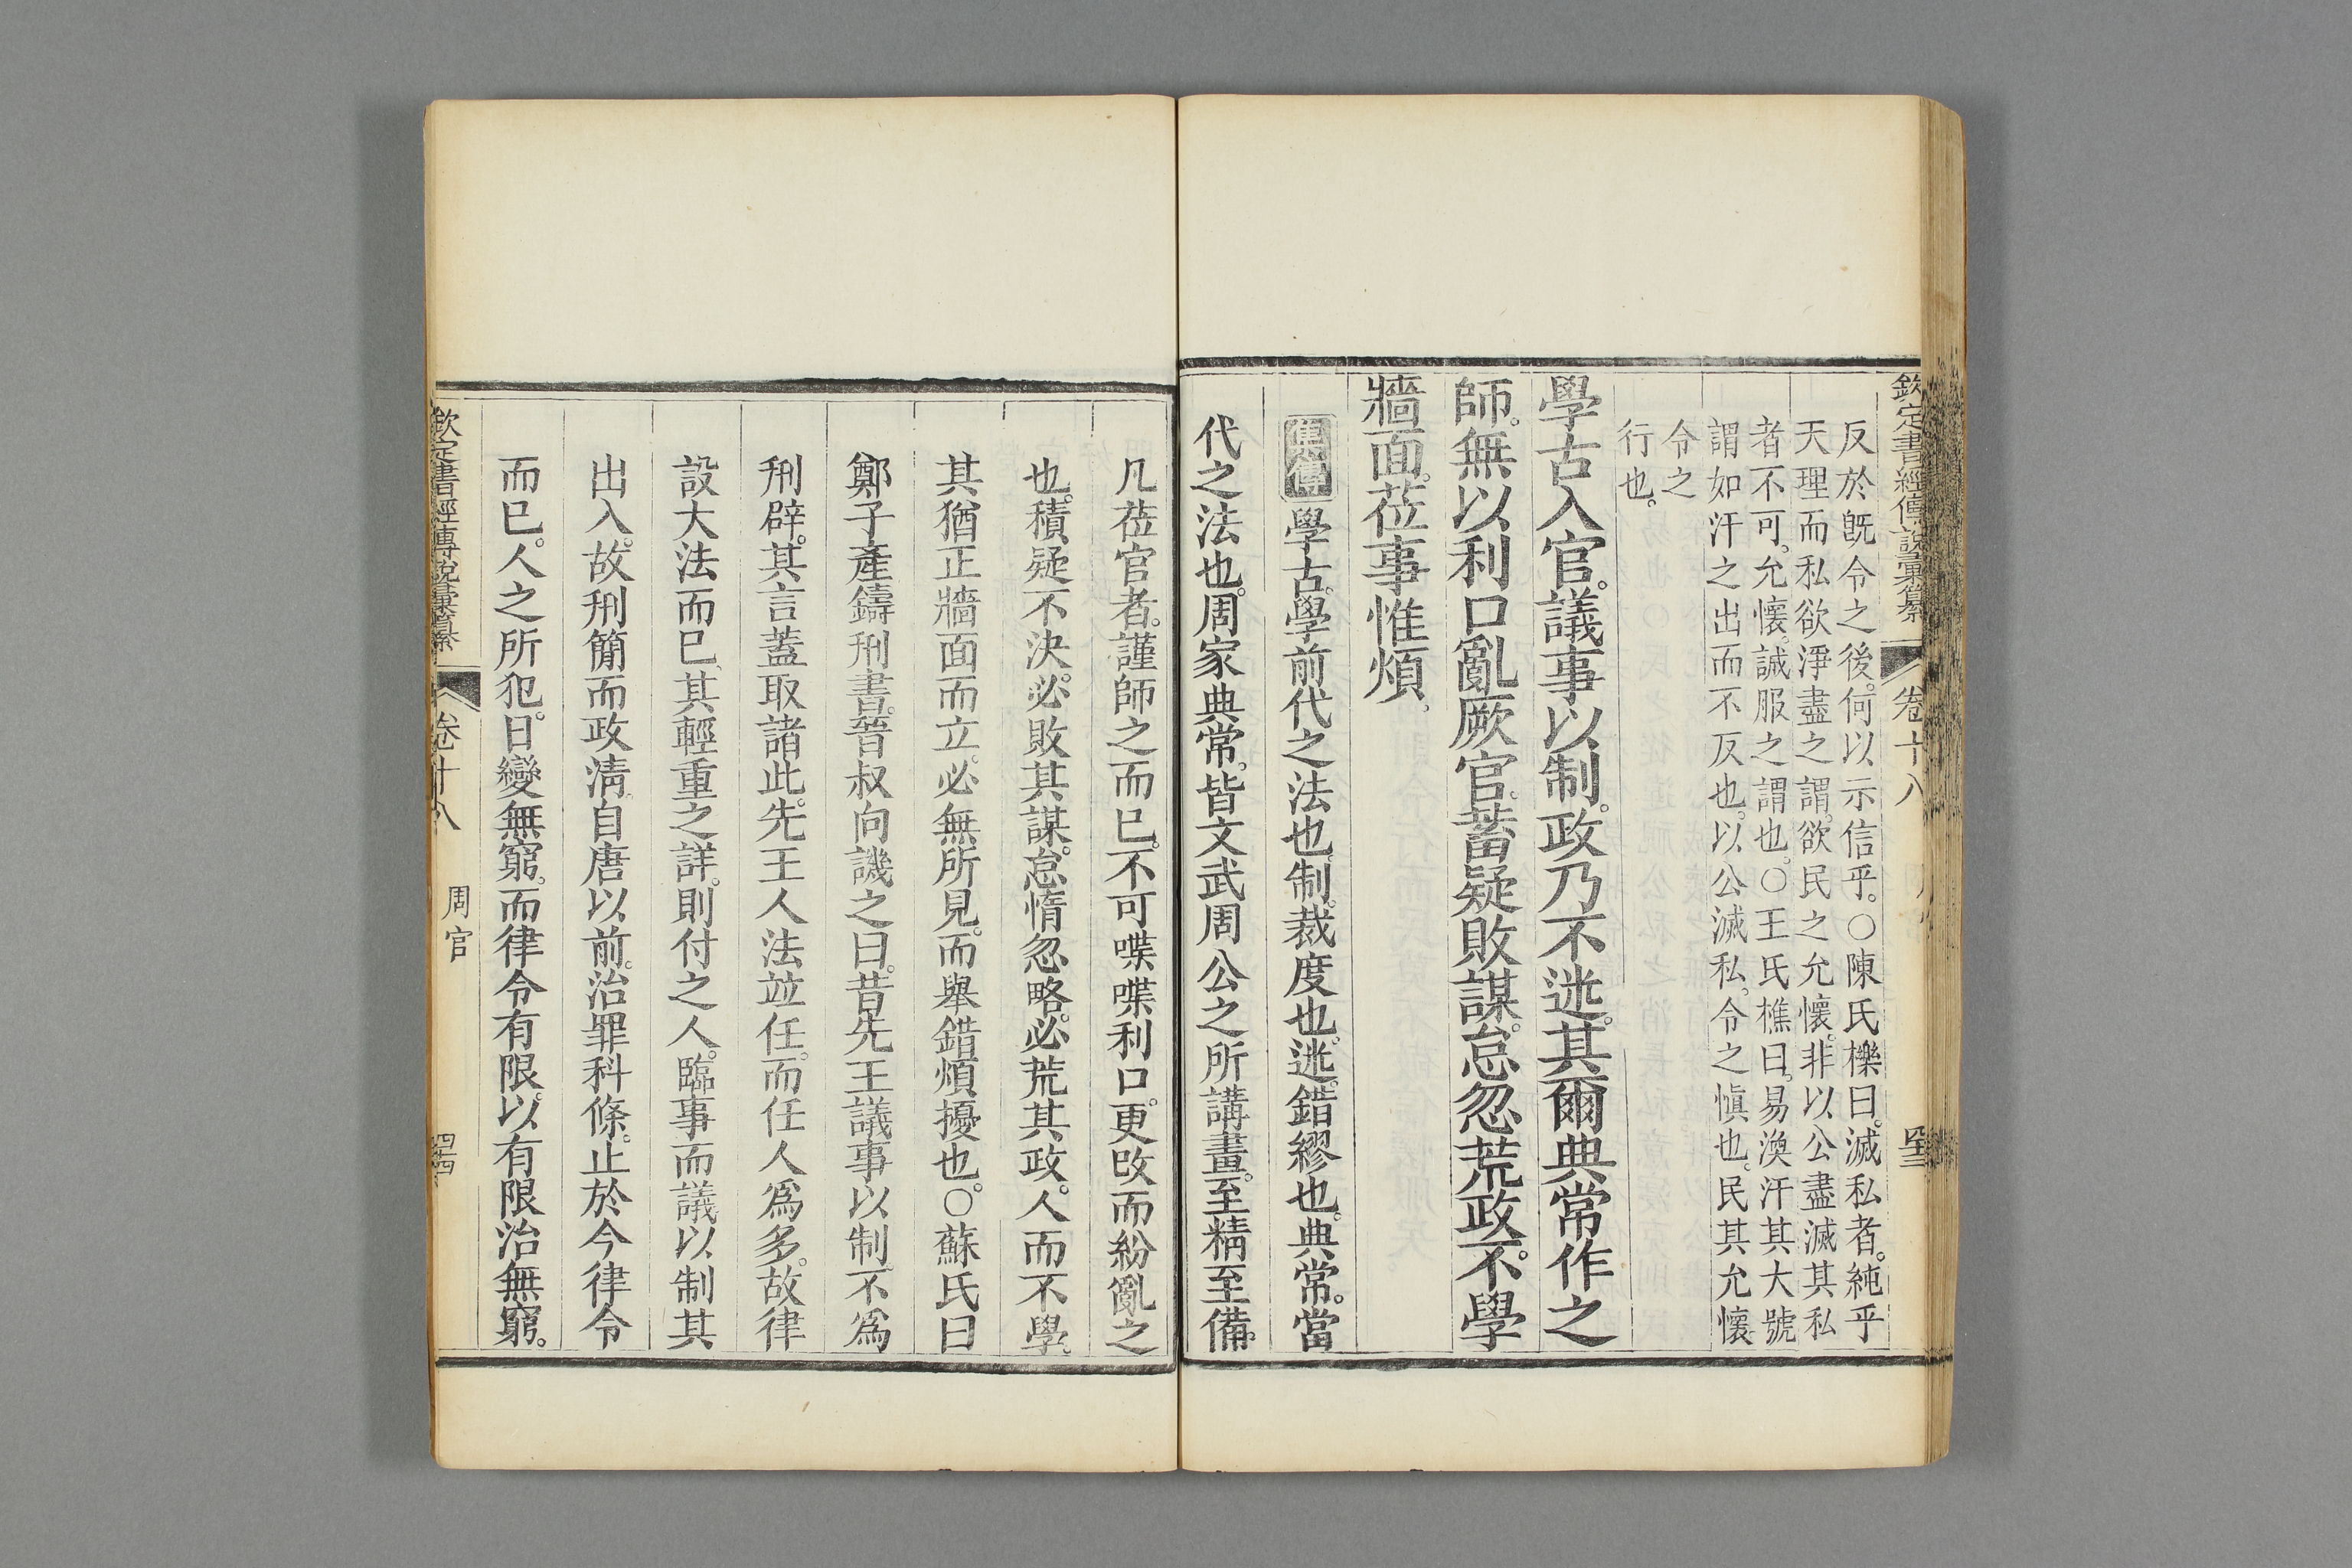 欽定書經傳說彙纂 卷十八
反於旣令之後。何以示信乎。〇陳氏櫟曰。滅私者。純乎
天理而私欲淨盡之謂。欲民之允懷。非以公盡滅其私
者不可。允懷。誠服之謂也。〇王氏樵曰。易渙汗其大號
謂如汗之出而不反也。以公滅私。令之愼也。民其允懷
令之
行也。
學古入官。議事以制。政乃不迷。其爾典常作之
師。無以利口亂厥官。蓄疑敗謀。怠忽荒政。不學
牆面。莅事惟煩。
集傳 學古。學前代之法也。制。裁度也。迷。錯繆也。典常。當
代之法也。周家典常。皆文武周公之所講畫。至精至備。
凡莅官者。謹師之而已。不可喋喋利口。更改而紛亂之
也。積疑不決。必敗其謀。怠惰忽略。必荒其政。人而不學。
其猶正牆面而立。必無所見。而舉錯煩擾也。〇蘇氏曰
鄭子產鑄刑書。晉叔向譏之曰。昔先王議事以制。不爲
刑辟。其言蓋取諸此。先王人法竝任。而任人爲多。故律
設大法而已。其輕重之詳。則付之人。臨事而議。以制其
出入。故刑簡而政淸。自唐以前。治罪科條。止於今律令
而已。人之所犯。日變無窮。而律令有限。以有限治無窮。
欽定書經傳說彙纂 卷十八 周官 四十四